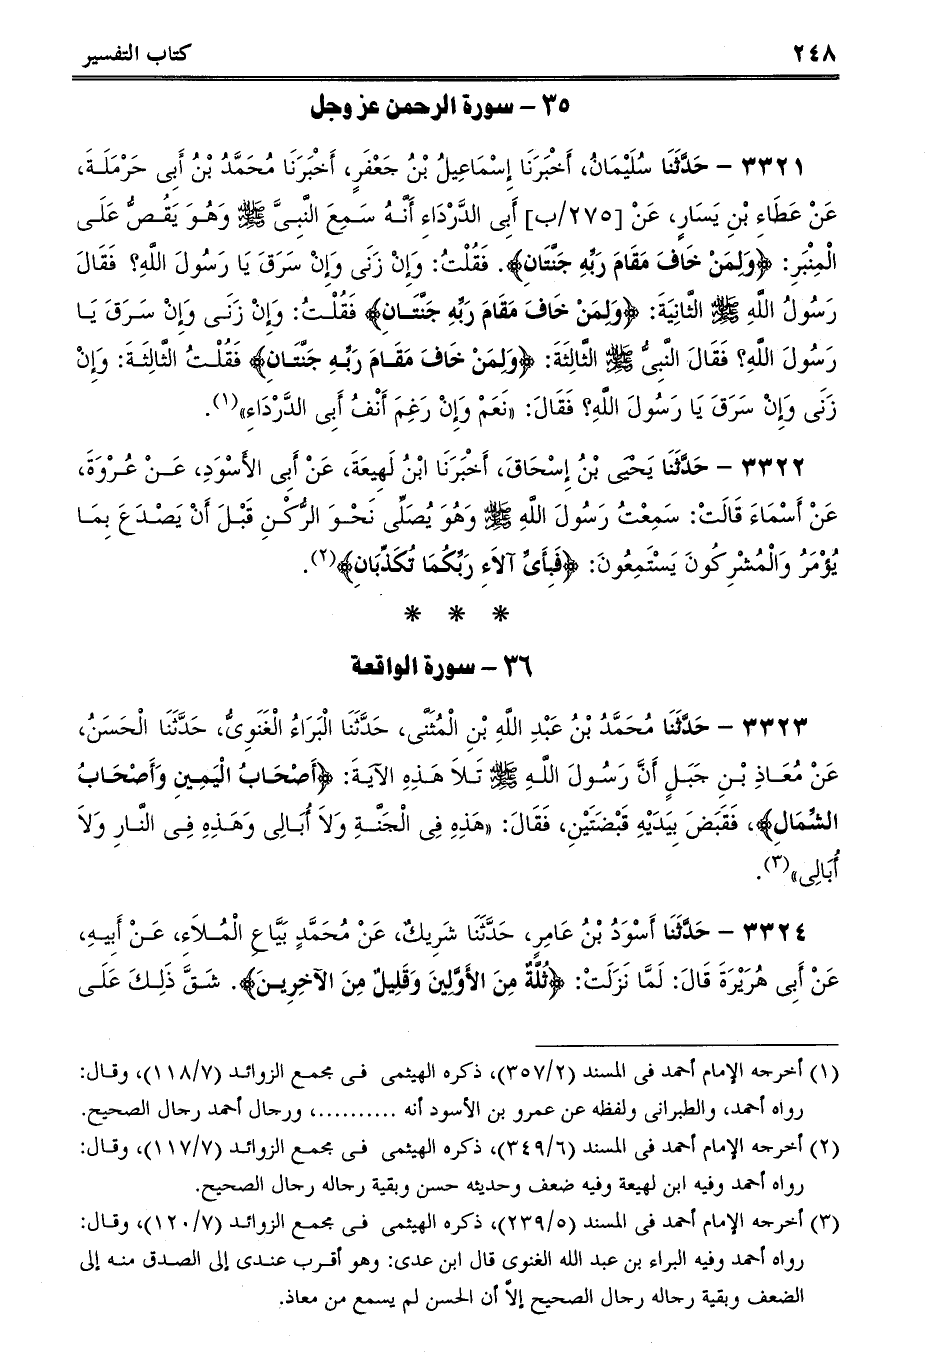 ٢٤٨ كتاب التفسير
٣٥ – سورة الرحمن عز وجل
٣٣٢١ – حَدَّثَنَا سُلَيْمَانُ، أَخْبَرَنَا إِسْمَاعِيلُ بْنُ جَعْفَرٍ، أَخْبَرَنَا مُحَمَّدُ بْنُ أَبِى حَرْمَلَةَ،
عَنْ عَطَاءِ بْنِ يَسَارٍ، عَنْ [٢٧٥/ب] أَبِى الدَّرْدَاءِ أَنَّهُ سَمِعَ النَّبِىَّ ﷺ وَهُوَ يَقُصُّ عَلَى
الْمِنْبَرِ: ﴿وَلِمَنْ خَافَ مَقَامَ رَبِّهِ جَنَّتَان﴾. فَقُلْتُ: وَإِنْ زَنَى وَإِنْ سَرَقَ يَا رَسُولَ اللَّهِ؟ فَقَالَ
رَسُولُ اللَّهِ ﷺ الثَّانِيَةَ: ﴿وَلِمَنْ خَافَ مَقَامَ رَبِّهِ جَنَّتَان﴾ فَقُلْتُ: وَإِنْ زَنَى وَإِنْ سَرَقَ يَا
رَسُولَ اللَّهِ؟ فَقَالَ النَّبِىُّ ﷺ الثَّالِثَةَ: ﴿وَلِمَنْ خَافَ مَقَامَ رَبِّهِ جَنَّتَان﴾ فَقُلْتُ الثَّالِثَةَ: وَإِنْ
زَنَى وَإِنْ سَرَقَ يَا رَسُولَ اللَّهِ؟ فَقَالَ: «نَعَمْ وَإِنْ رَغِمَ أَنْفُ أَبِى الدَّرْدَاءِ»(١).
٣٣٢٢ – حَدَّثَنَا يَحْيَى بْنُ إِسْحَاقَ، أَخْبَرَنَا ابْنُ لَهِيعَةَ، عَنْ أَبِى الأَسْوَدِ، عَنْ عُرْوَةَ،
عَنْ أَسْمَاءَ قَالَتْ: سَمِعْتُ رَسُولَ اللَّهِ ﷺ وَهُوَ يُصَلِّى نَحْوَ الرُّكْنِ قَبْلَ أَنْ يَصْدَعَ بِمَا
يُؤْمَرُ وَالْمُشْرِكُونَ يَسْتَمِعُونَ: ﴿فَبِأَىِّ آلاَءِ رَبِّكُمَا تُكَذِّبَانِ﴾(٢).
* * *
٣٦ – سورة الواقعة
٣٣٢٣ – حَدَّثَنَا مُحَمَّدُ بْنُ عَبْدِ اللَّهِ بْنِ الْمُثَنَّى، حَدَّثَنَا الْبَرَاءُ الْغَنَوِىُّ، حَدَّثَنَا الْحَسَنُ،
عَنْ مُعَاذِ بْنِ جَبَلٍ أَنَّ رَسُولَ اللَّهِ ﷺ تَلاَ هَذِهِ الآيَةَ: ﴿أَصْحَابُ الْيَمِينِ وَأَصْحَابُ
الشِّمَالِ﴾، فَقَبَضَ بِيَدَيْهِ قَبْضَتَيْنِ، فَقَالَ: «هَذِهِ فِى الْجَنَّةِ وَلاَ أُبَالِى وَهَذِهِ فِى النَّارِ وَلاَ
أُبَالِى»(٣).
٣٣٢٤ – حَدَّثَنَا أَسْوَدُ بْنُ عَامِرٍ، حَدَّثَنَا شَرِيكٌ، عَنْ مُحَمَّدٍ بَيَّاعِ الْمُلاَءِ، عَنْ أَبِيهِ،
عَنْ أَبِى هُرَيْرَةَ قَالَ: لَمَّا نَزَلَتْ: ﴿ثُلَّةٌ مِنَ الأَوَّلِينَ وَقَلِيلٌ مِنَ الآخِرِينَ﴾. شَقَّ ذَلِكَ عَلَى
(١) أخرجه الإمام أحمد فى المسند (٣٥٧/٢)، ذكره الهيثمى فى مجمع الزوائد (١١٨/٧)، وقال:
رواه أحمد، والطبرانى ولفظه عن عمرو بن الأسود أنه ..........، ورجال أحمد رجال الصحيح.
(٢) أخرجه الإمام أحمد فى المسند (٣٤٩/٦)، ذكره الهيثمى فى مجمع الزوائد (١١٧/٧)، وقال:
رواه أحمد وفيه ابن لهيعة وفيه ضعف وحديثه حسن وبقية رجاله رجال الصحيح.
(٣) أخرجه الإمام أحمد فى المسند (٢٣٩/٥)، ذكره الهيثمى فى مجمع الزوائد (١٢٠/٧)، وقال:
رواه أحمد وفيه البراء بن عبد الله الغنوى قال ابن عدى: وهو أقرب عندى إلى الصدق منه إلى
الضعف وبقية رجاله رجال الصحيح إلاَّ أن الحسن لم يسمع من معاذ.